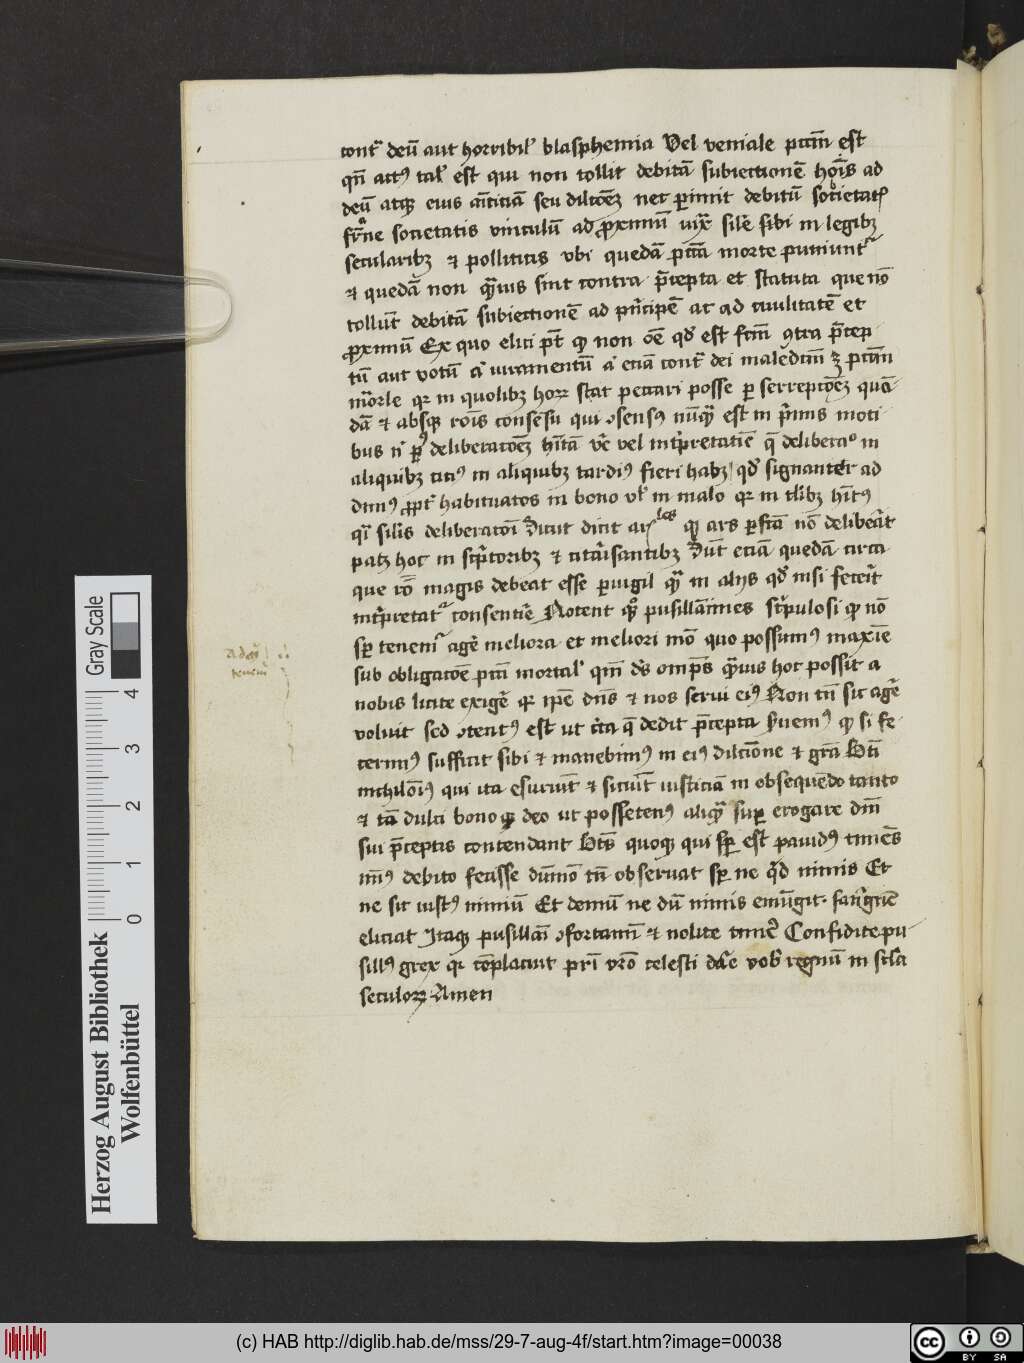 contͬ deū aut horribilʼ blasphemia Vel veniale pctm̄ est
qn̄ actꝰ talʼ est qui non tollit debitā subiectionē hoīs ad
deū atqꝫ eius amīticiā seu dilcōeꝫ nec ꝑimit debitū societatꝭ
frn̄e societatis vinculū ad ꝓximū uixͣ sile sibi in legibꝫ
secularibꝫ ⁊ polliticis vbi quedā pctā morte puniuntͬ
⁊ quedā non qͣuis sint contra p̄cepta et statuta que nō
tollūt debitā subiectionē ad pͥncipē ac ad ciuilitatē et
ꝓximū Ex quo elici pt̄ ꝙ non oē qd̓ est fcm̄ ꝯtra p̄cep
tū aut votū aʼ iuramentū aʼ etiā contͬ dei maledcm̄ ꝫ pctm̄
mͦrtale qꝛ in quolibꝫ hoꝝ stat peccari posse ꝑ surreptōeꝫ quā
dā ⁊ absqꝫ rōis consensu qui ꝯsensꝰ nūqͣ est in pͥmis moti
bus nʼ pꝰ deliberatōeꝫ hītā vē vel int̓pretatiē q̄ deliberaᵒ in
aliquibꝫ citiꝰ in aliquibꝫ tardiꝰ fieri habꝫ qd̓ signanter ad
dimꝰ ꝓpt̓ habituatos in bono vlʼ in malo qꝛ in tlibꝫ hītꝰ
qͥ silis deliberatōi Sicut dicit arˡᵉˢ ꝙ ars ꝑfcā nō delib̓at
patꝫ hoc in scͥptoribꝫ ⁊ citarisantibꝫ Sūt etiā quedā circa
que rō magis debeat esse ꝑuigil qͣ in alijs qd̓ nisi fecerit
int̓pretatͬ consentire Notent qͦ pusillanimes scͬpulosi ꝙ nō
sꝑ tenemͬ agē meliora et meliori mō quo possumꝰ maxīe
sub obligatōe pcti mortalʼ qm̄ ds̄ omps̄ qͣuis hoc possit a
nobis licite exigē qꝛ ipē dn̄s ⁊ nos serui eiꝰ Non tn̄ sic agē
voluit sed ꝯtentꝰ est ut cͥca q̄ dedit p̄cepta suemꝰ ꝙ si fe
cerimꝰ sufficit sibi ⁊ manebimꝰ in eiꝰ dilcione ⁊ grā Hti
nichilōiꝰ qui ita esuriūt ⁊ siciūt iusticiā in obsequēdo tanto
⁊ tā dulci bono qꝫ deo ut possetenꝰ aliqͣ suꝑ erogare dn̄i
sui p̄ceptis contendant Hts̄ quoqꝫ qui sꝑ est pauidꝰ timēs
mīꝰ debito fecisse dūmō tn̄ obseruat sꝑ ne qͥd nimis Et
ne sit iustꝰ nimiū Et demū ne dū nimis emūgit fanguiē
eliciat Itaqꝫ pusillāi ꝯfortamī ⁊ nolite timē Confidite pu
sillꝰ grex qꝛ cōplacuit prī vrō celesti dare vob̓ regnū in scla
seculoꝝ Amen
(c) HAB http://diglib.hab.de/mss/29-7-aug-4f/start.htm?image=00038
Herzog August Bibliothek
Wolfenbüttel
Gray Scale
0 1 2 3 4
cc
BY SA